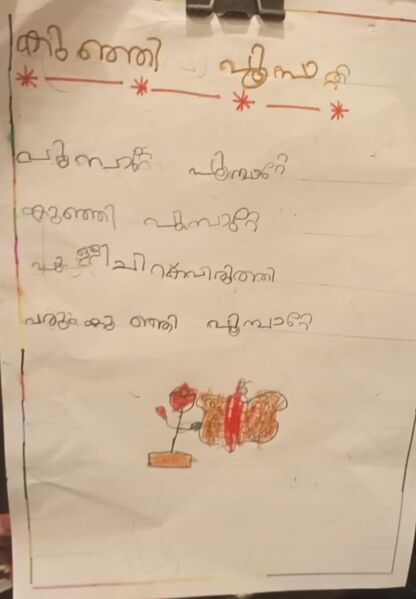 കുഞ്ഞി പൂമ്പാറ്റ
പൂമ്പാറ്റേ പൂമ്പാറ്റേ
കുഞ്ഞി പൂമ്പാറ്റേ
പുള്ളിചിറക്വിരുത്തി
വരും കുഞ്ഞി പൂമ്പാറ്റേ